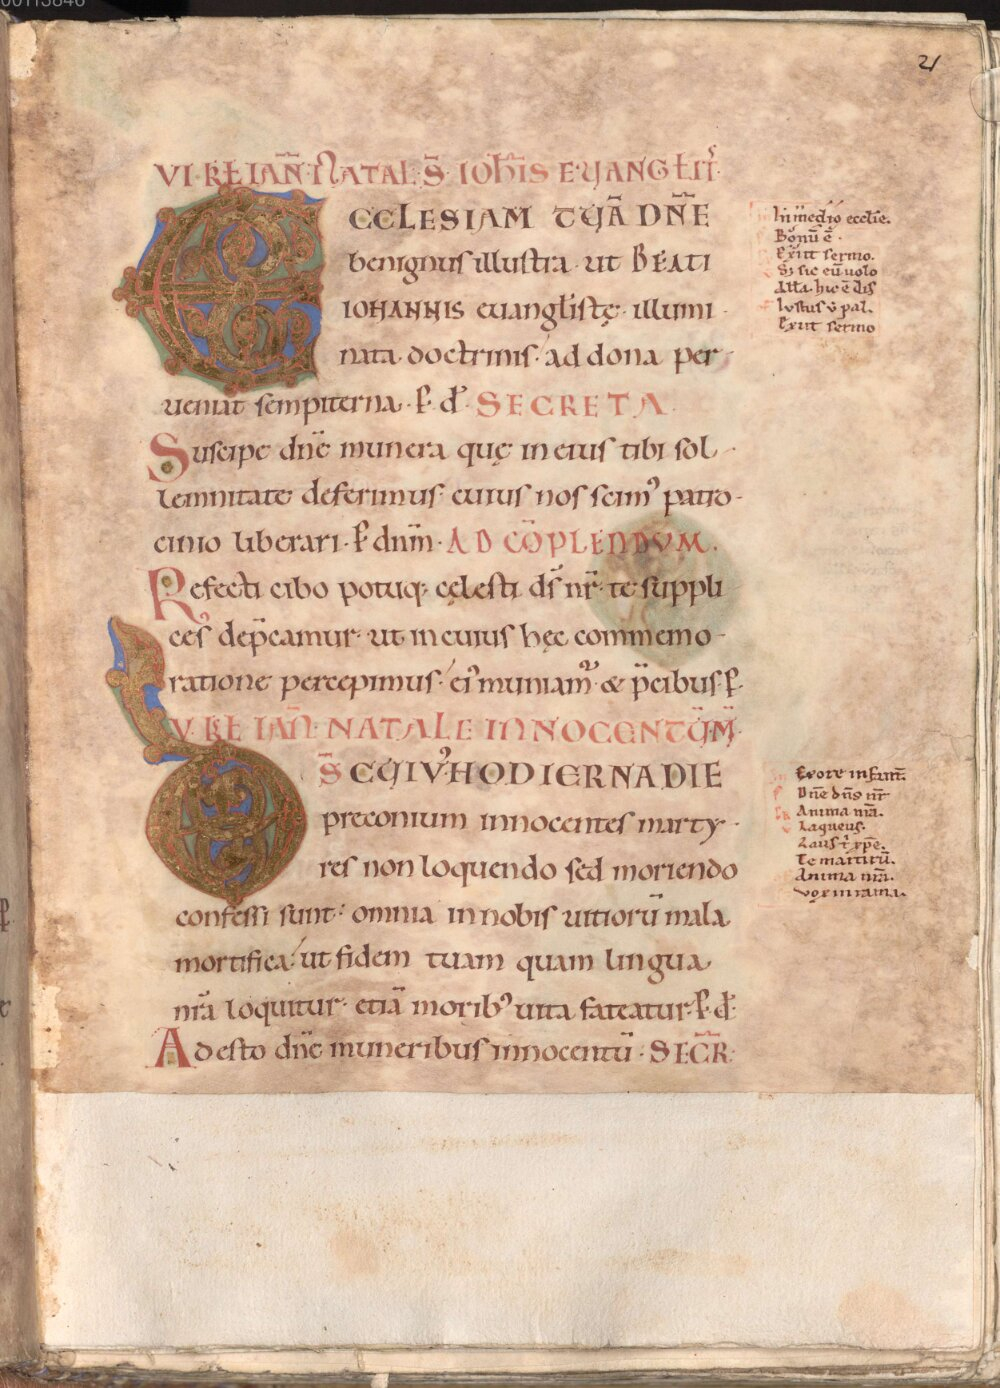 00113846
21
VI·KŁ IAÑ·NATAL S̄ IOHĪS EUANGŁII·
ECCLESIAM TUĀ DNĒ
benignus illustra· ut BEATI
IOHANNIS euanglistę· illumi
nata· doctrinis· ad dona per
ueniat sempiterna· P̱ d̄· SECRETA
Suscipe dnē munera quę in eius tibi sol
lemnitate deferimus· cuius nos scim᷒ patro
cinio liberari· P̱ dnm̄· AD CŌPLENDVM.
Refecti cibo potuq; cęlesti dс̄ nr̄· te suppli
ces dep̄camur· ut in cuius hęc commemo
ratione percepimus· ei᷒ muniam᷒ & p̄cibus· P̱
V· KŁ IAÑ· NATALE INNOCENTUM
D̄S CUIV᷒ HODIERNA DIE
preconium innocentes marty
res non loquendo sed moriendo
confessi sunt· omnia in nobis uitiorū mala
mortifica· ut fidem tuam quam lingua
nr̄a loquitur· etiā morib᷒ uita fateatur· P̱ d̄·
Adesto dnē muneribus innocentū· SECR̄·
In medio ecclīe.
Bonū ē·
Exiit sermo.
Si sic eū uolo
Alła· hic ē dis
Iustus ū pal.
Exiit sermo
Ex ore infant̄.
Dnē dn̄s nr̄
Anima nr̄a.
Laqueus.
Laus t̄ xp̄e.
Te martirū.
Anima nr̄a.
Vox in rama.